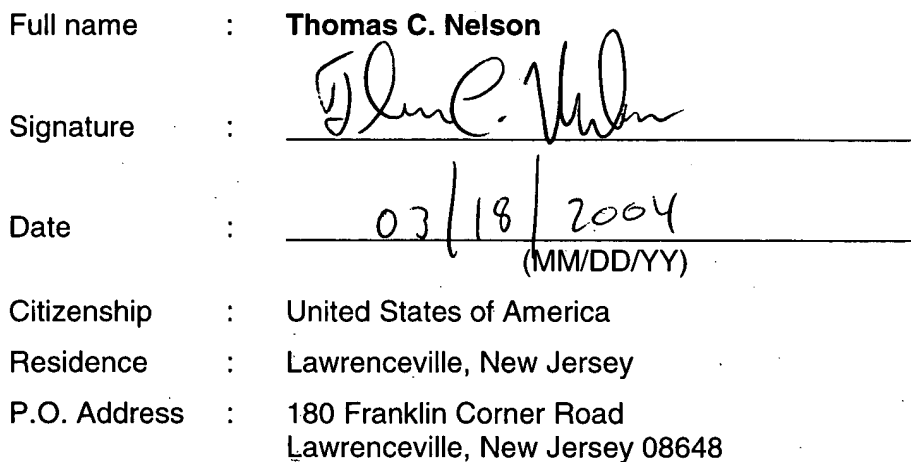 Full name : Thomas C. Nelson
Signature : Thomas C. Nelson
Date : 03/18/2004
(MM/DD/YY)
Citizenship : United States of America
Residence : Lawrenceville, New Jersey
P.O. Address : 180 Franklin Corner Road
Lawrenceville, New Jersey 08648